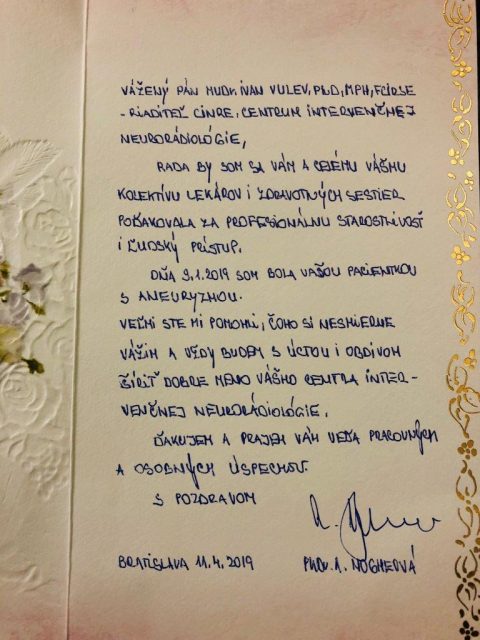 VÁŽENÝ PÁN MUDr. IVAN VULEV, PhD, MPH, FCIRSE
- RIADITEĽ CINRE, CENTRUM INTERVENČNEJ
NEURORÁDIOLÓGIE,
RADA BY SOM SA VÁM A CELÉMU VÁŠMU
KOLEKTÍVU LEKÁROV I ZDRAVOTNÝCH SESTIER
POĎAKOVALA ZA PROFESIONÁLNU STAROSTLIVOSŤ
I ĽUDSKÝ PRÍSTUP.
DŇA 9.1.2019 SOM BOLA VAŠOU PACIENTKOU
S ANEURYZMOU.
VEĽMI STE MI POMOHLI, ČOHO SI NESMIERNE
VÁŽIM A VŽDY BUDEM S ÚCTOU I OBDIVOM
ŠÍRIŤ DOBRE MENO VÁŠHO CENTRA INTER-
VENČNEJ NEURORÁDIOLÓGIE.
ĎAKUJEM A PRAJEM VÁM VEĽA PRACOVNÝCH
A OSOBNÝCH ÚSPECHOV.
S POZDRAVOM
BRATISLAVA 11.4.2019 A. NOGHEOVÁ